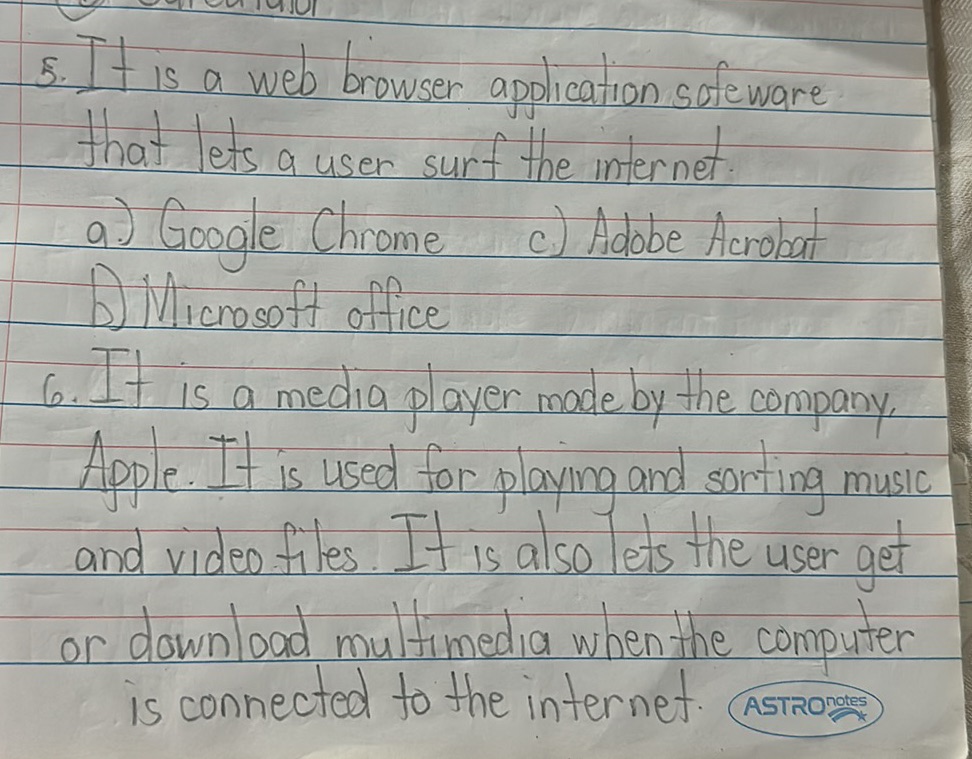 5. It is a web browser application safeware
that lets a user surf the internet.
a.) Google Chrome c.) Adobe Acrobat
b) Microsoft office
6. It is a media player made by the company,
Apple. It is used for playing and sorting music
and video files. It is also lets the user get
or download multimedia when the computer
is connected to the internet. ASTROnotes